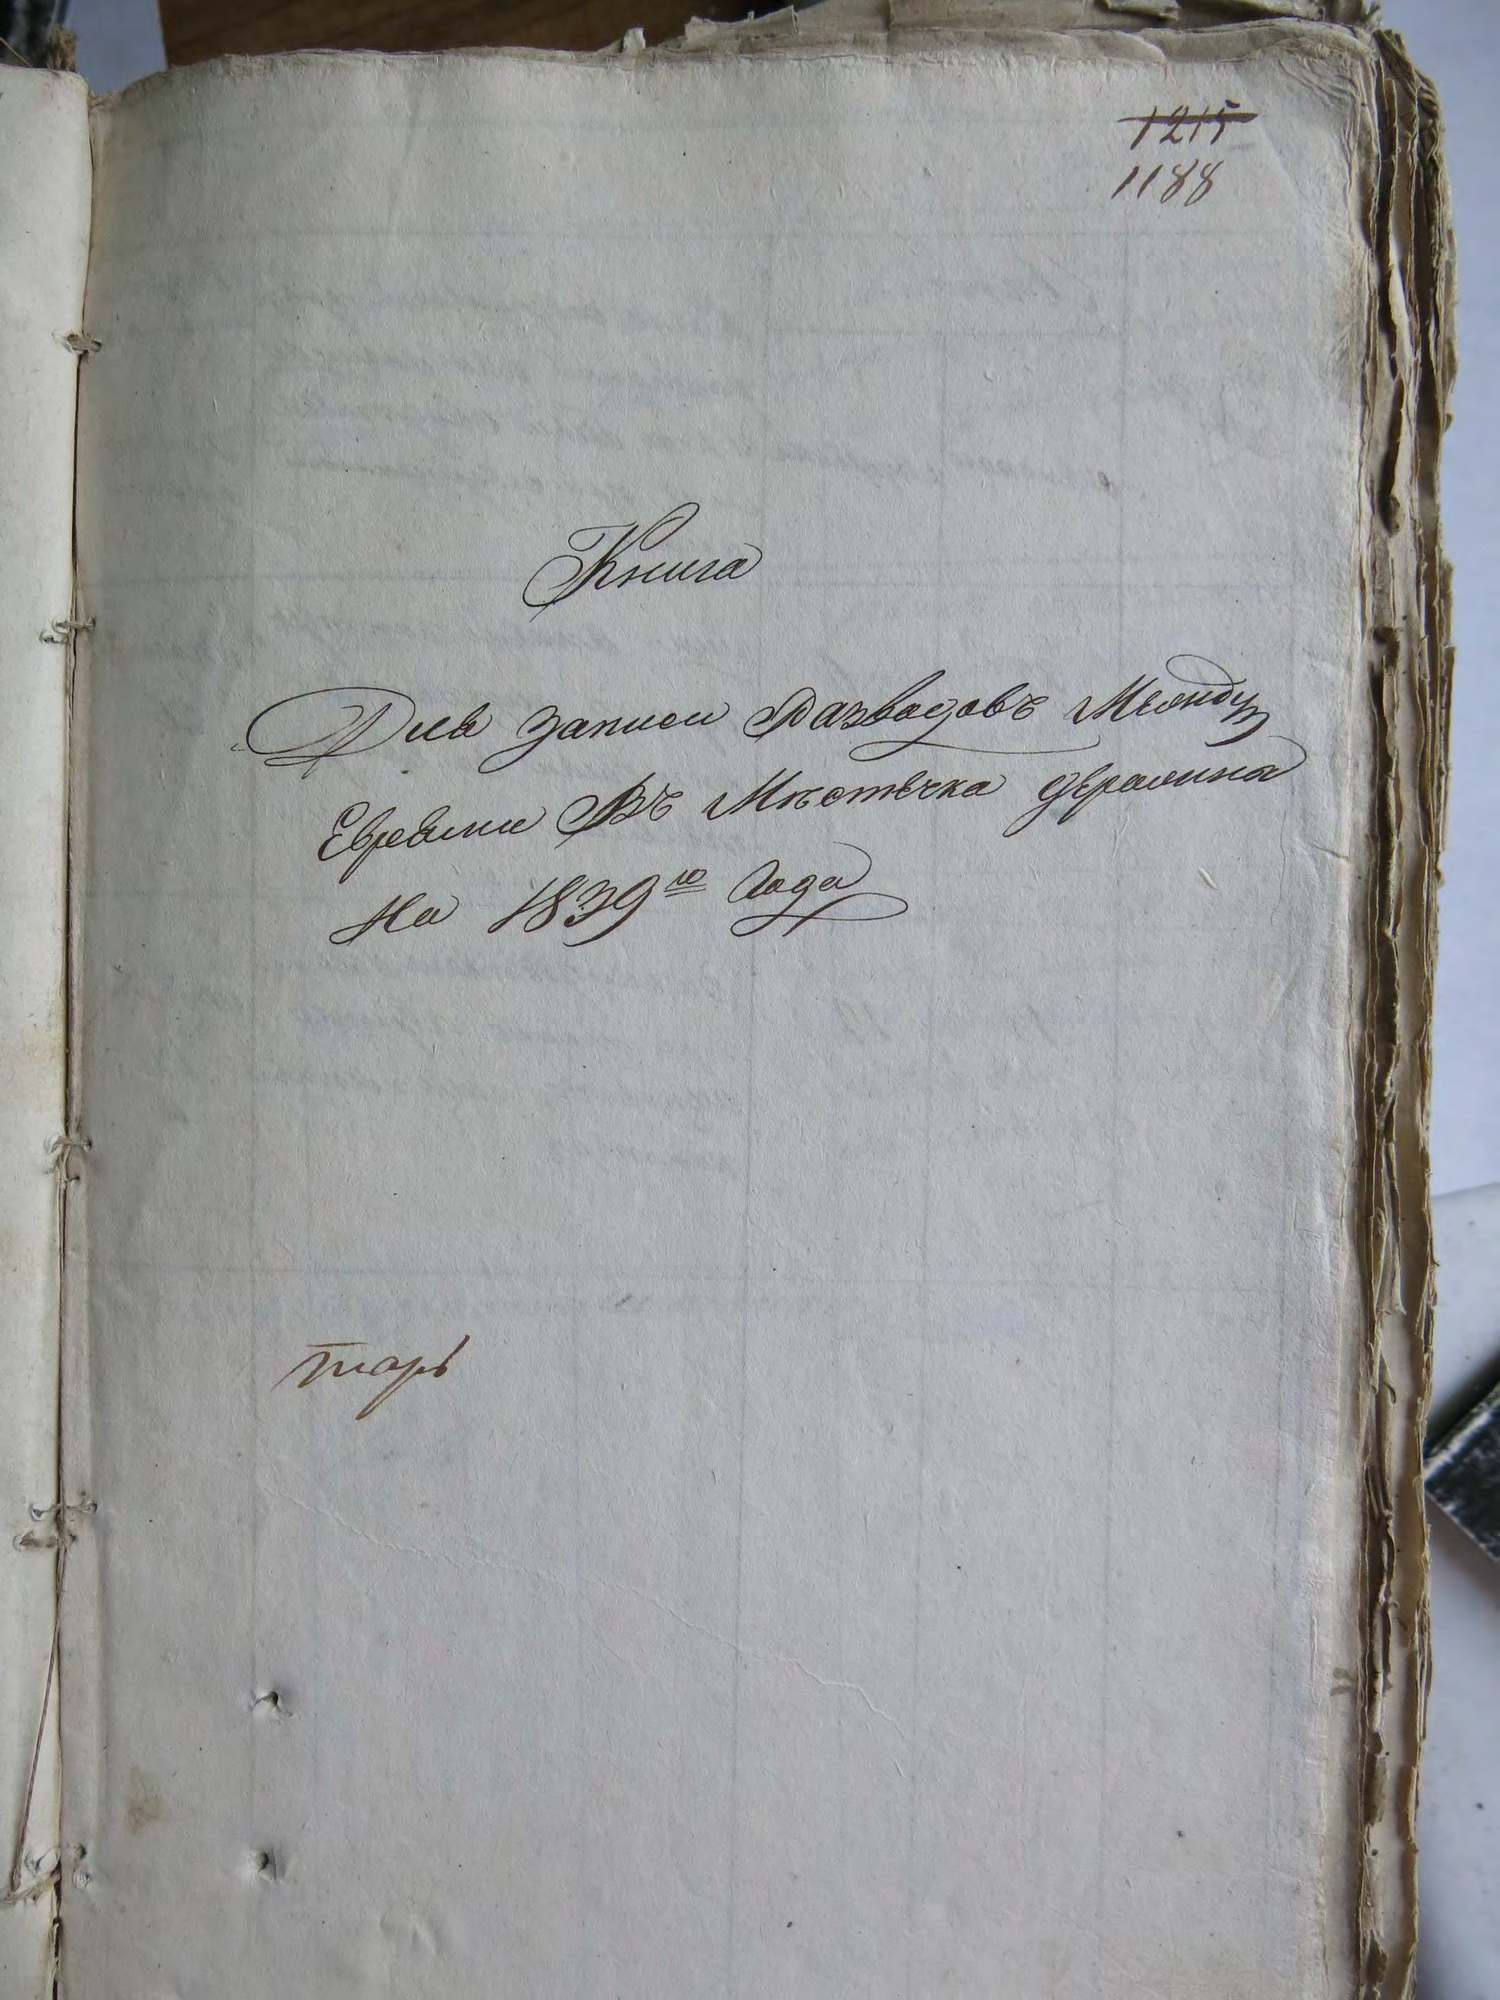 1215
1188
Книга
Для записи Разводовъ Между
Евреями Въ Мѣстечка
На 1839го Года
тарь